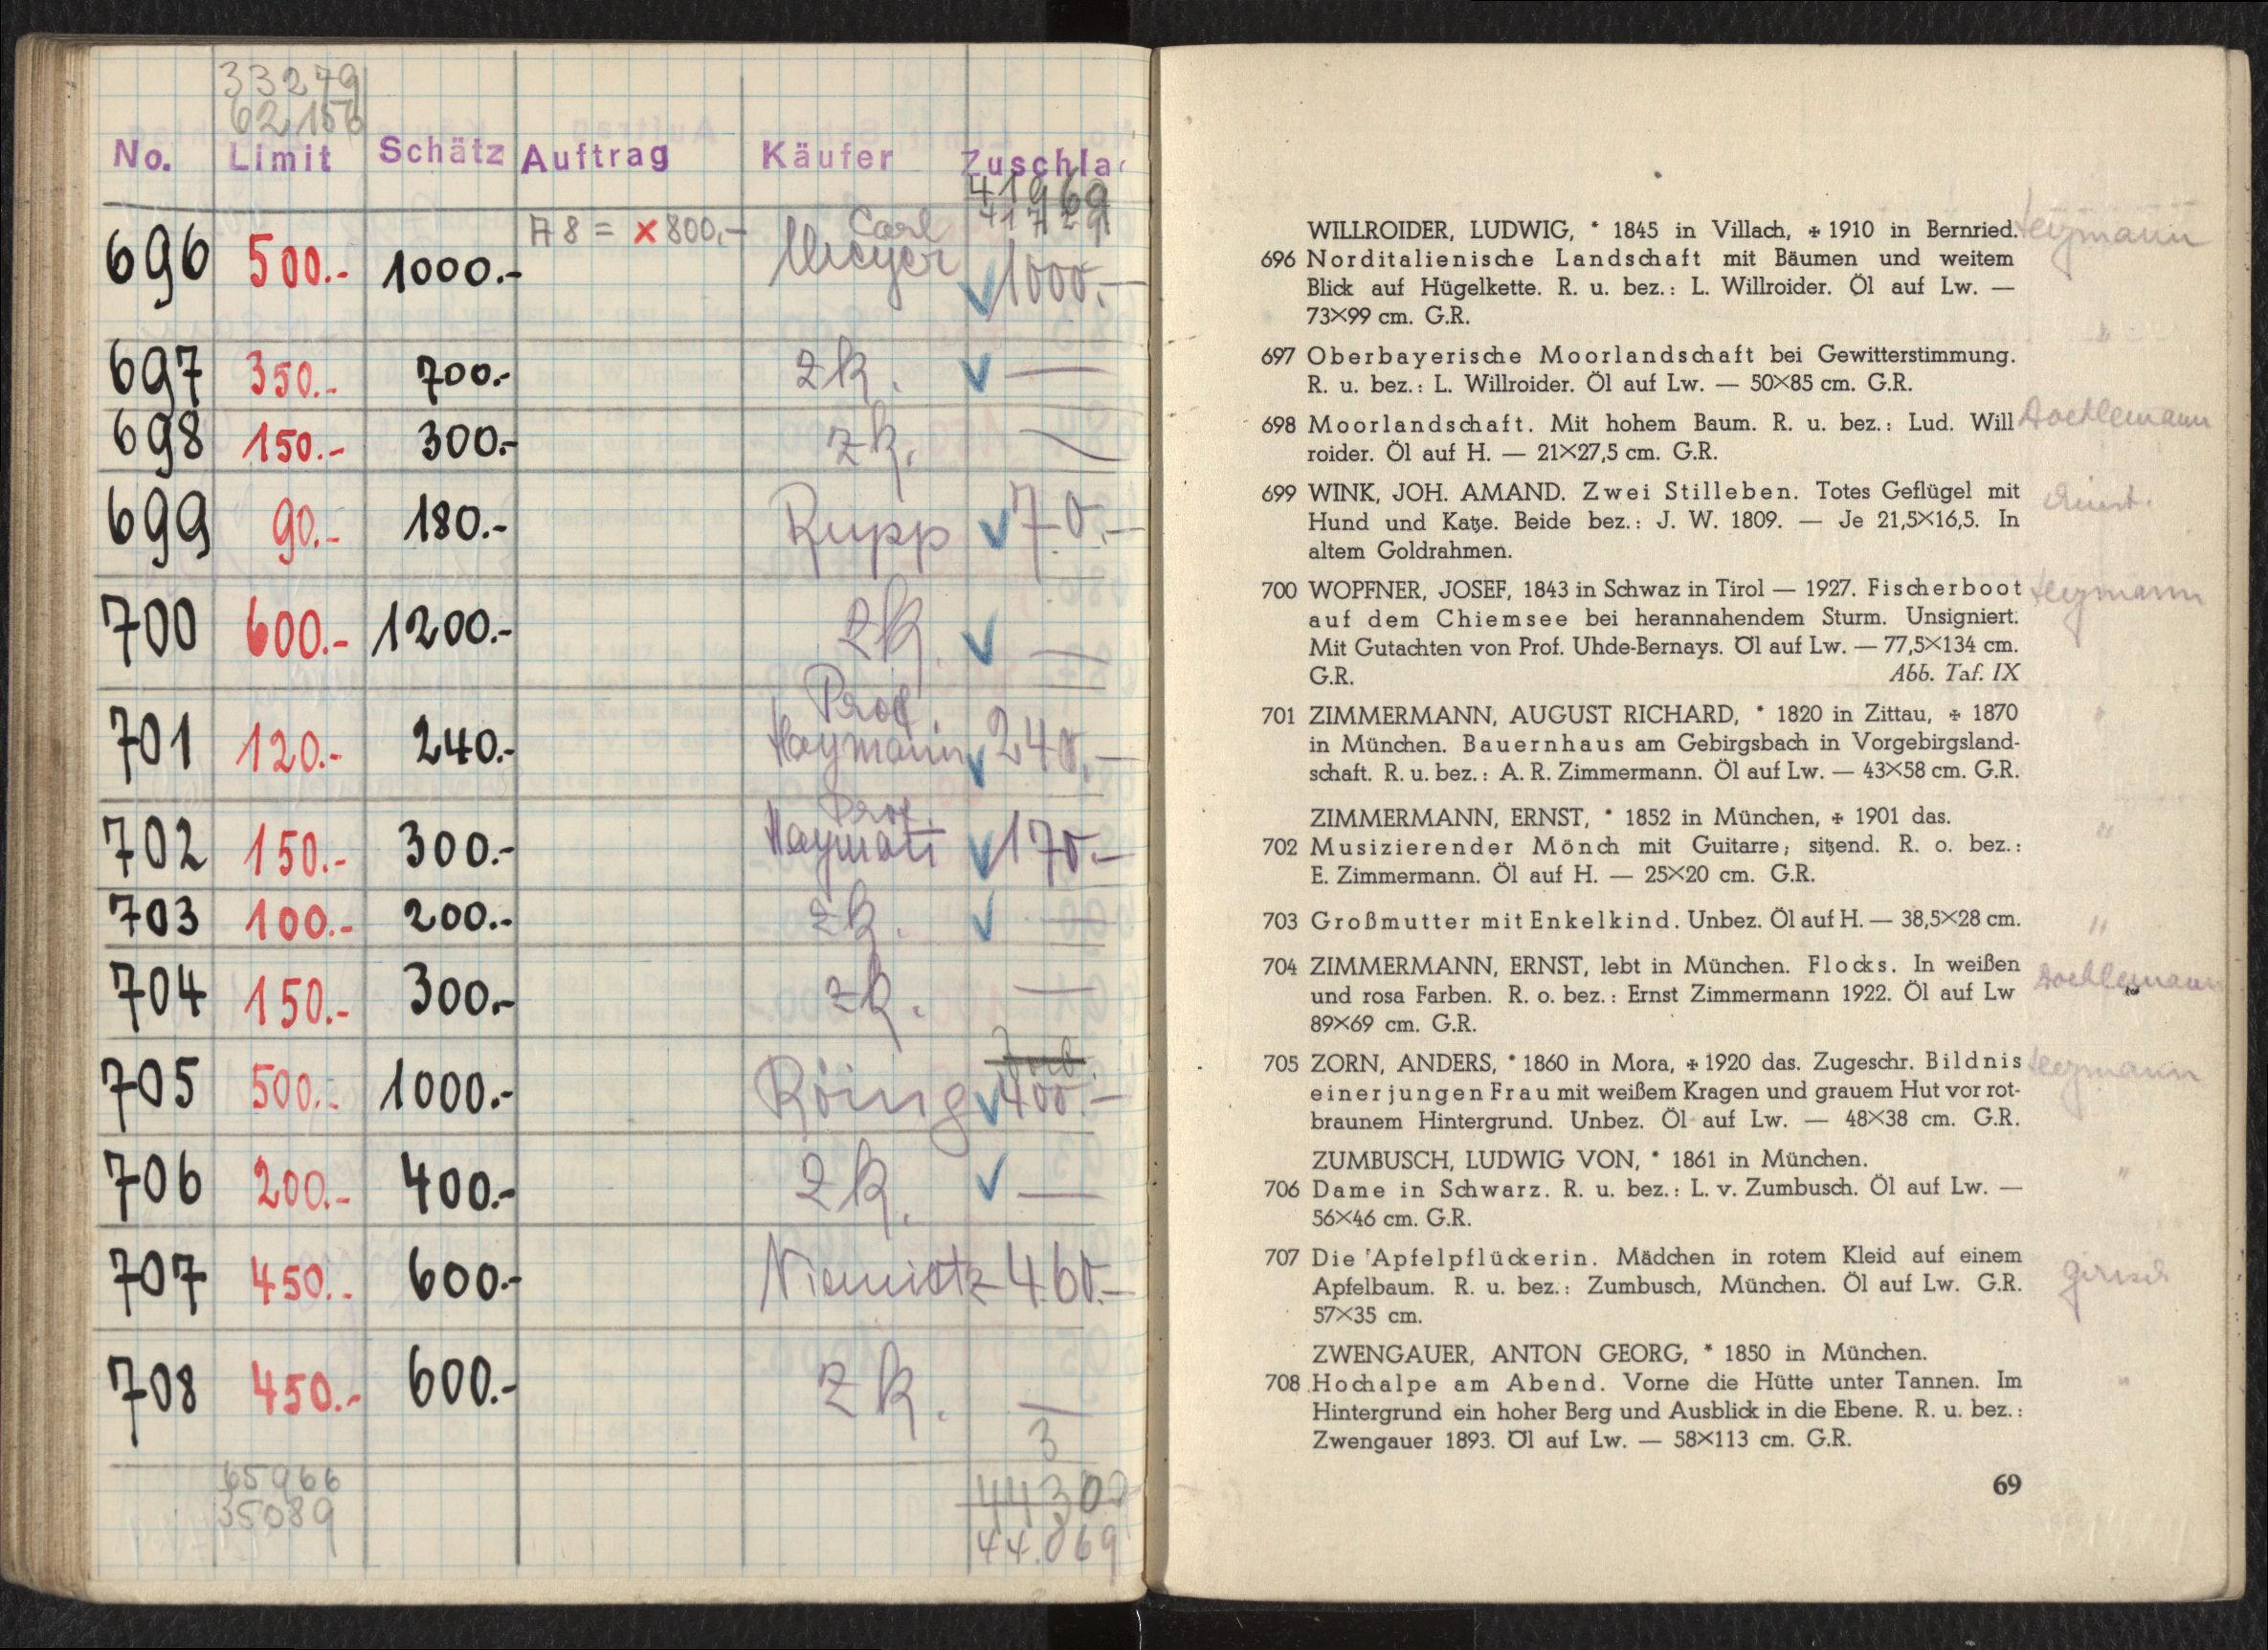 33279
62,156
No. Limit Schätz Auftrag Käufer Zuschla
41969
696 500.- 1000.- A 8 = x 800.- Carl Meyer 1000.-
697 350.- 700.- zk. —
698 150.- 300.- zk. —
699 90.- 180.- Rupp 70.-
700 600.- 1200.- zk. —
701 120.- 240.- Prof. Haymann 240.-
702 150.- 300.- Prof. 170.-
703 100.- 200.- zk. —
704 150.- 300.- zk. —
705 500.- 1000.- Röing 400.-
706 200.- 400.- zk. —
707 450.- 600.- 460.-
708 450.- 600.- zk. —
3
65966
35089
4430
44.069
WILLROIDER, LUDWIG, * 1845 in Villach, ✠ 1910 in Bernried.
696 Norditalienische Landschaft mit Bäumen und weitem
Blick auf Hügelkette. R. u. bez.: L. Willroider. Öl auf Lw. —
73×99 cm. G.R.
697 Oberbayerische Moorlandschaft bei Gewitterstimmung.
R. u. bez.: L. Willroider. Öl auf Lw. — 50×85 cm. G.R.
698 Moorlandschaft. Mit hohem Baum. R. u. bez.: Lud. Will
roider. Öl auf H. — 21×27,5 cm. G.R.
699 WINK, JOH. AMAND. Zwei Stilleben. Totes Geflügel mit
Hund und Katze. Beide bez.: J. W. 1809. — Je 21,5×16,5. In
altem Goldrahmen.
700 WOPFNER, JOSEF, 1843 in Schwaz in Tirol — 1927. Fischerboot
auf dem Chiemsee bei herannahendem Sturm. Unsigniert.
Mit Gutachten von Prof. Uhde-Bernays. Öl auf Lw. — 77,5×134 cm.
G.R. Abb. Taf. IX
701 ZIMMERMANN, AUGUST RICHARD, * 1820 in Zittau, ✠ 1870
in München. Bauernhaus am Gebirgsbach in Vorgebirgsland-
schaft. R. u. bez.: A. R. Zimmermann. Öl auf Lw. — 43×58 cm. G.R.
ZIMMERMANN, ERNST, * 1852 in München, ✠ 1901 das.
702 Musizierender Mönch mit Guitarre; sitzend. R. o. bez.:
E. Zimmermann. Öl auf H. — 25×20 cm. G.R.
"
703 Großmutter mit Enkelkind. Unbez. Öl auf H. — 38,5×28 cm.
"
704 ZIMMERMANN, ERNST, lebt in München. Flocks. In weißen
und rosa Farben. R. o. bez.: Ernst Zimmermann 1922. Öl auf Lw
89×69 cm. G.R.
705 ZORN, ANDERS, * 1860 in Mora, ✠ 1920 das. Zugeschr. Bildnis
einer jungen Frau mit weißem Kragen und grauem Hut vor rot-
braunem Hintergrund. Unbez. Öl auf Lw. — 48×38 cm. G.R.
ZUMBUSCH, LUDWIG VON, * 1861 in München.
"
706 Dame in Schwarz. R. u. bez.: L. v. Zumbusch. Öl auf Lw. —
56×46 cm. G.R.
707 Die Apfelpflückerin. Mädchen in rotem Kleid auf einem
Apfelbaum. R. u. bez.: Zumbusch, München. Öl auf Lw. G.R.
57×35 cm.
ZWENGAUER, ANTON GEORG, * 1850 in München.
708 Hochalpe am Abend. Vorne die Hütte unter Tannen. Im
Hintergrund ein hoher Berg und Ausblick in die Ebene. R. u. bez.:
Zwengauer 1893. Öl auf Lw. — 58×113 cm. G.R.
69